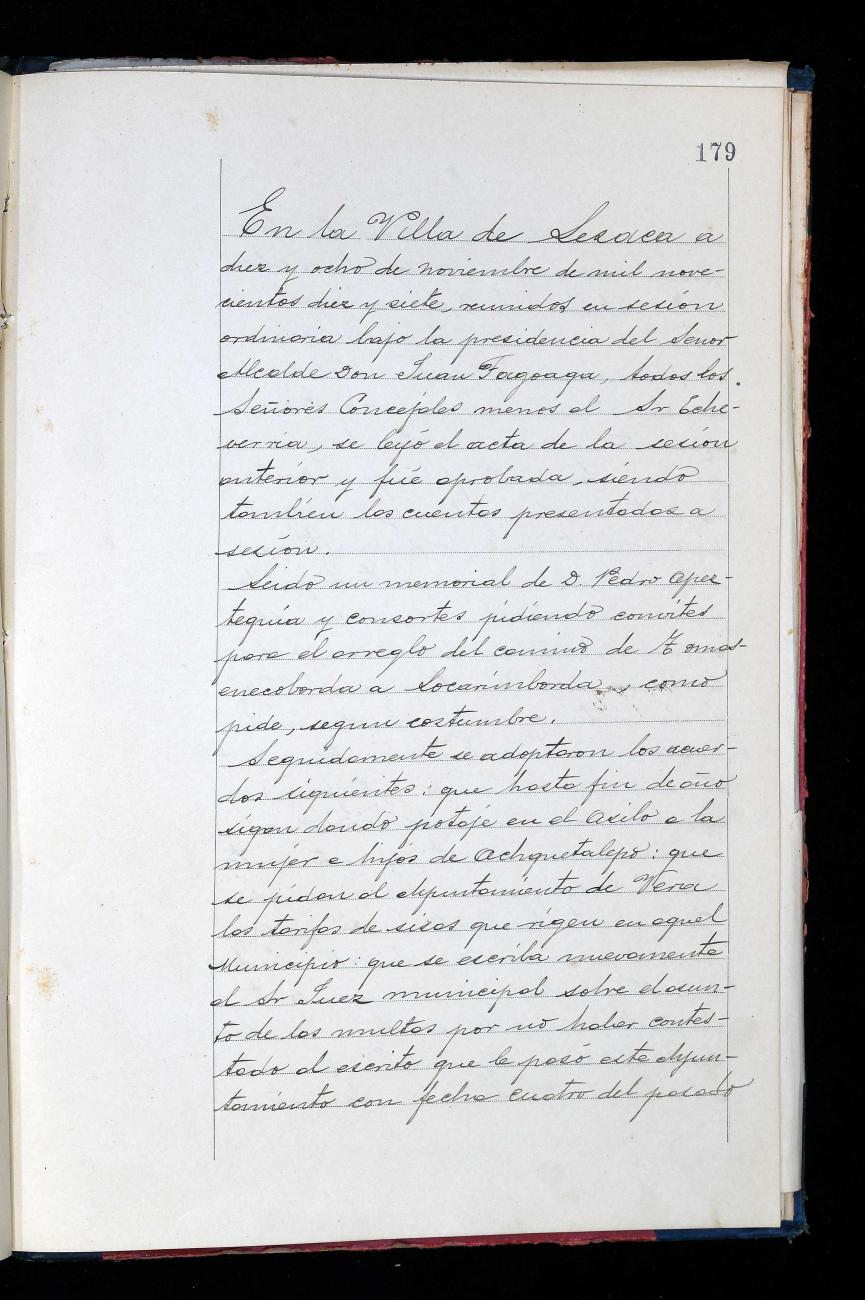 179
En la Villa de Lesaca a
diez y ocho de noviembre de mil nove-
cientos diez y siete, reunidos en sesión
ordinaria bajo la presidencia del Señor
Alcalde Don Juan Fagoaga, todos los
Señores Concejales menos el Sr Eche-
verria, se leyó el acta de la sesión
anterior y fué aprobada, siendo
tambíen las cuentas presentadas a
sesión.
Leido un memorial de D. Pedro Apez-
teguía y consortes pidiendo convites
para el arreglo del camino de
a como
pide, segun costumbre.
Seguidamente se adoptaron los acuer-
dos siguientes: que hasta fin de año
sigan dando potaje en el Asilo a la
mujer e hijos de Achquetalepo: que
se pidan al Ayuntamiento de Vera
las tarifas de sisas que rigen en aquel
Municipio: que se escriba nuevamente
al Sr Juez municipal sobre el asun-
to de las multas por no haber contes-
tado al escrito que le pasó este Ayun-
tamiento con fecha cuatro del pasado